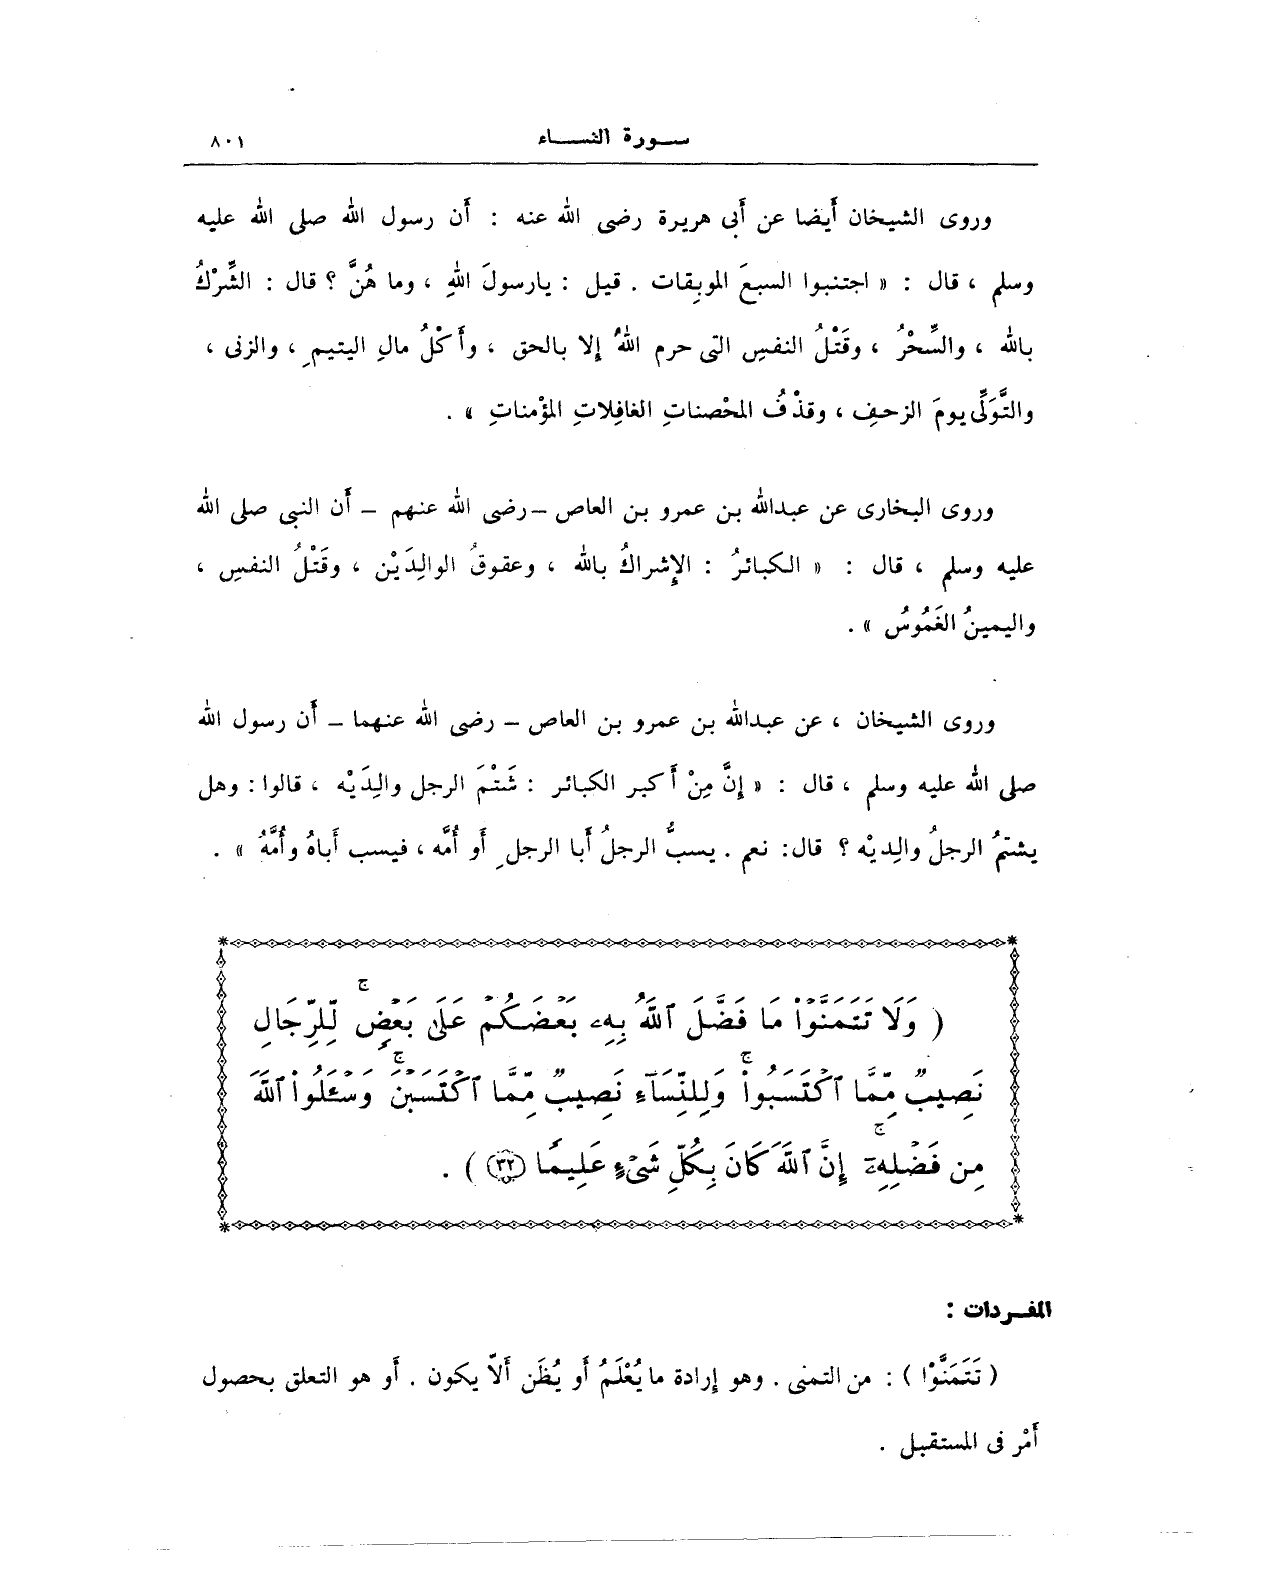 سـورة النسـاء ٨٠١
وروى الشيخان أَيضا عن أَبى هريرة رضى الله عنه : أَن رسول الله صلى الله عليه
وسلم ، قال : « اجتنبوا السبعَ الموبِقات . قيل : يارسولَ اللهِ ، وما هُنَّ ؟ قال : الشِّرْكُ
بالله ، والسِّحْرُ ، وقَتْلُ النفسِ التى حرم اللهُ إلا بالحق ، وأَكْلُ مالِ اليتيمِ ، والزنى ،
والتَّوَلِّى يومَ الزحفِ ، وقذْفُ المحْصناتِ الغافِلاتِ المؤْمناتِ » .
وروى البخارى عن عبدالله بن عمرو بن العاص – رضى الله عنهم – أَن النبى صلى الله
عليه وسلم ، قال : « الكبائرُ : الإشراكُ بالله ، وعقوقُ الوالِدَيْن ، وقَتْلُ النفسِ ،
واليمينُ الغَمُوسُ » .
وروى الشيخان ، عن عبدالله بن عمرو بن العاص – رضى الله عنهما – أَن رسول الله
صلى الله عليه وسلم ، قال : « إنَّ مِنْ أَكبر الكبائر : شَتْمَ الرجل والِدَيْه ، قالوا : وهل
يشتمُ الرجلُ والِديْه ؟ قال: نعم . يسبُّ الرجلُ أَبا الرجلِ أَو أُمَّه ، فيسب أَباهُ وأُمَّهُ » .
( وَلَا تَتَمَنَّوْا۟ مَا فَضَّلَ ٱللَّهُ بِهِۦ بَعْضَكُمْ عَلَىٰ بَعْضٍ ۚ لِّلرِّجَالِ
نَصِيبٌ مِّمَّا ٱكْتَسَبُوا۟ ۖ وَلِلنِّسَآءِ نَصِيبٌ مِّمَّا ٱكْتَسَبْنَ ۚ وَسْـَٔلُوا۟ ٱللَّهَ
مِن فَضْلِهِۦٓ ۚ إِنَّ ٱللَّهَ كَانَ بِكُلِّ شَىْءٍ عَلِيمًا (٣٢) ) .
المفـردات :
( تَتَمَنَّوْا ) : من التمنى . وهو إرادة ما يُعْلَمُ أَو يُظَن أَلاَّ يكون . أَو هو التعلق بحصول
أَمْر فى المستقبل .